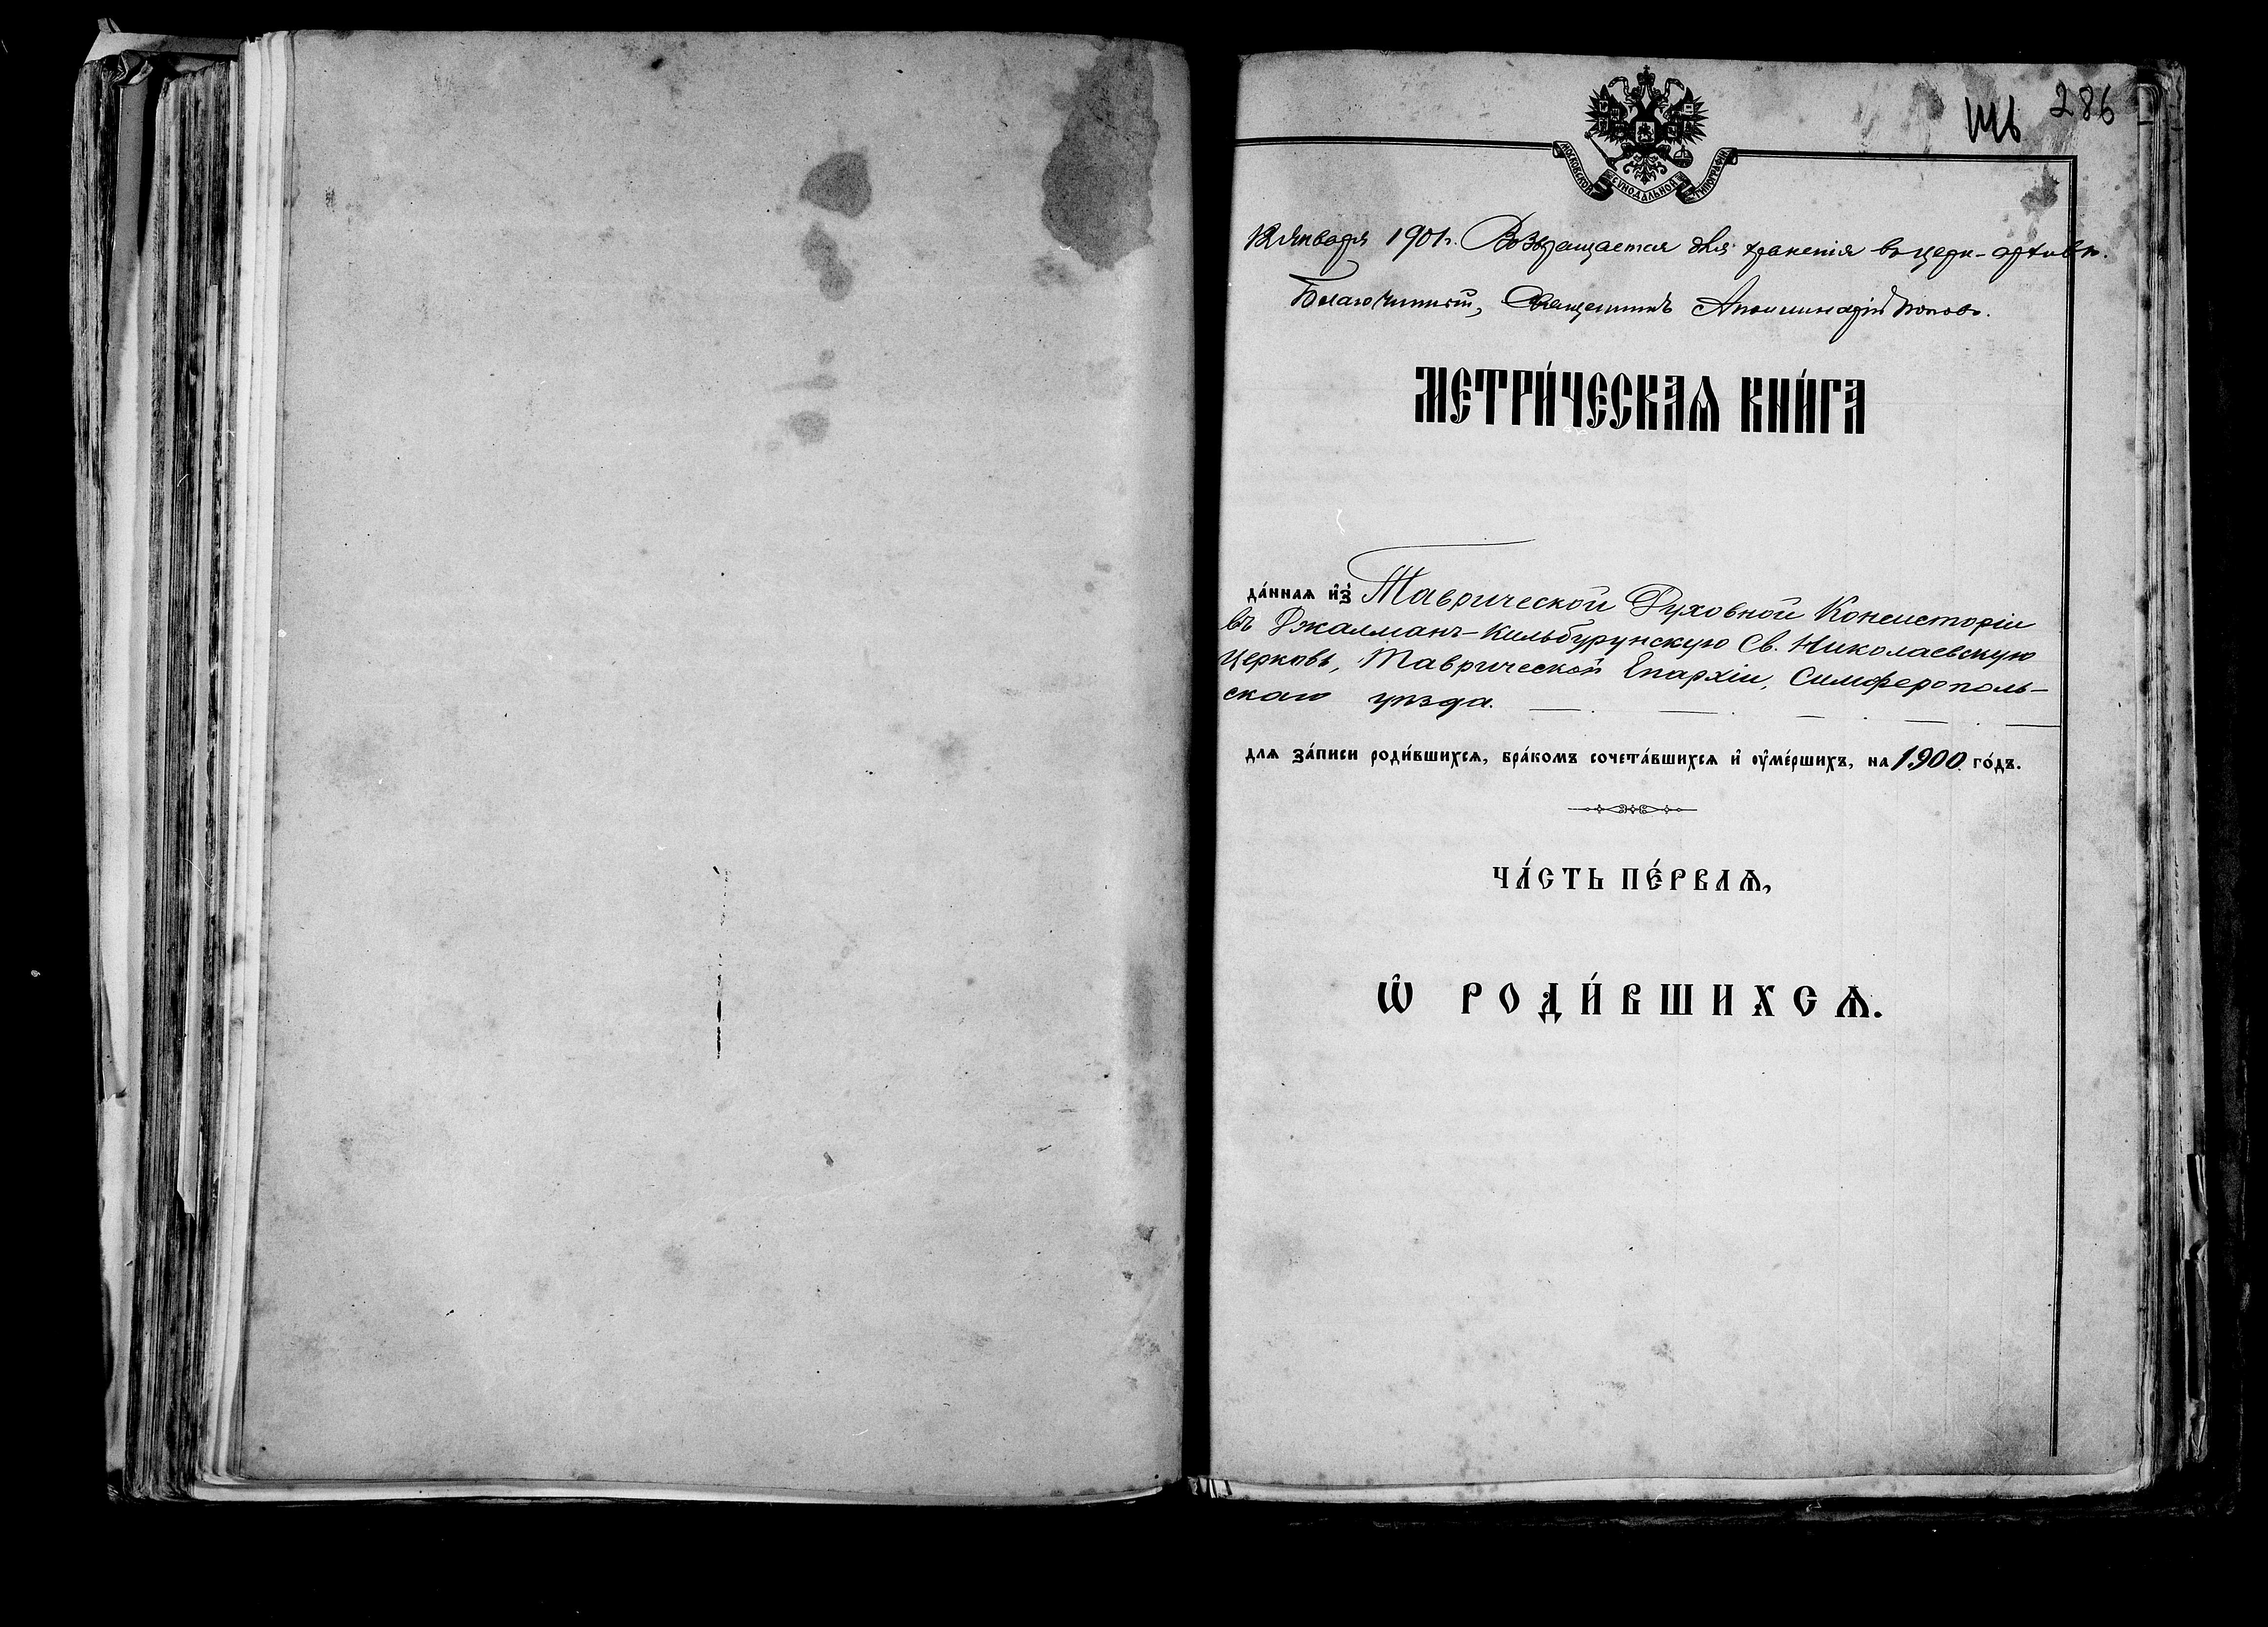 286
МОСКОВСКОЙ СѴНОДАЛЬНОЙ ТИПОГРАФІИ
12 Января 1901 г. Возвращается для храненія въ церк-архивъ.
Благочинный, Священникъ Аполлинарій Поповъ.
МЕТРИ́ЧЕСКАѦ КНИ́ГА
да́ннаѧ и҆зъ Таврической Духовной Консисторіи
въ Джалманъ-Кильбурунскую Св. Николаевскую
Церковь, Таврической Епархіи, Симферополь-
скаго уѣзда.
длѧ за́писи роди́вшихсѧ, бра́комъ сочета́вшихсѧ и҆ ᲂу҆ме́ршихъ, на 1900 го́дъ.
ЧА́СТЬ ПЕ́РВАѦ,
Ѽ РОДИ́ВШИХСѦ.